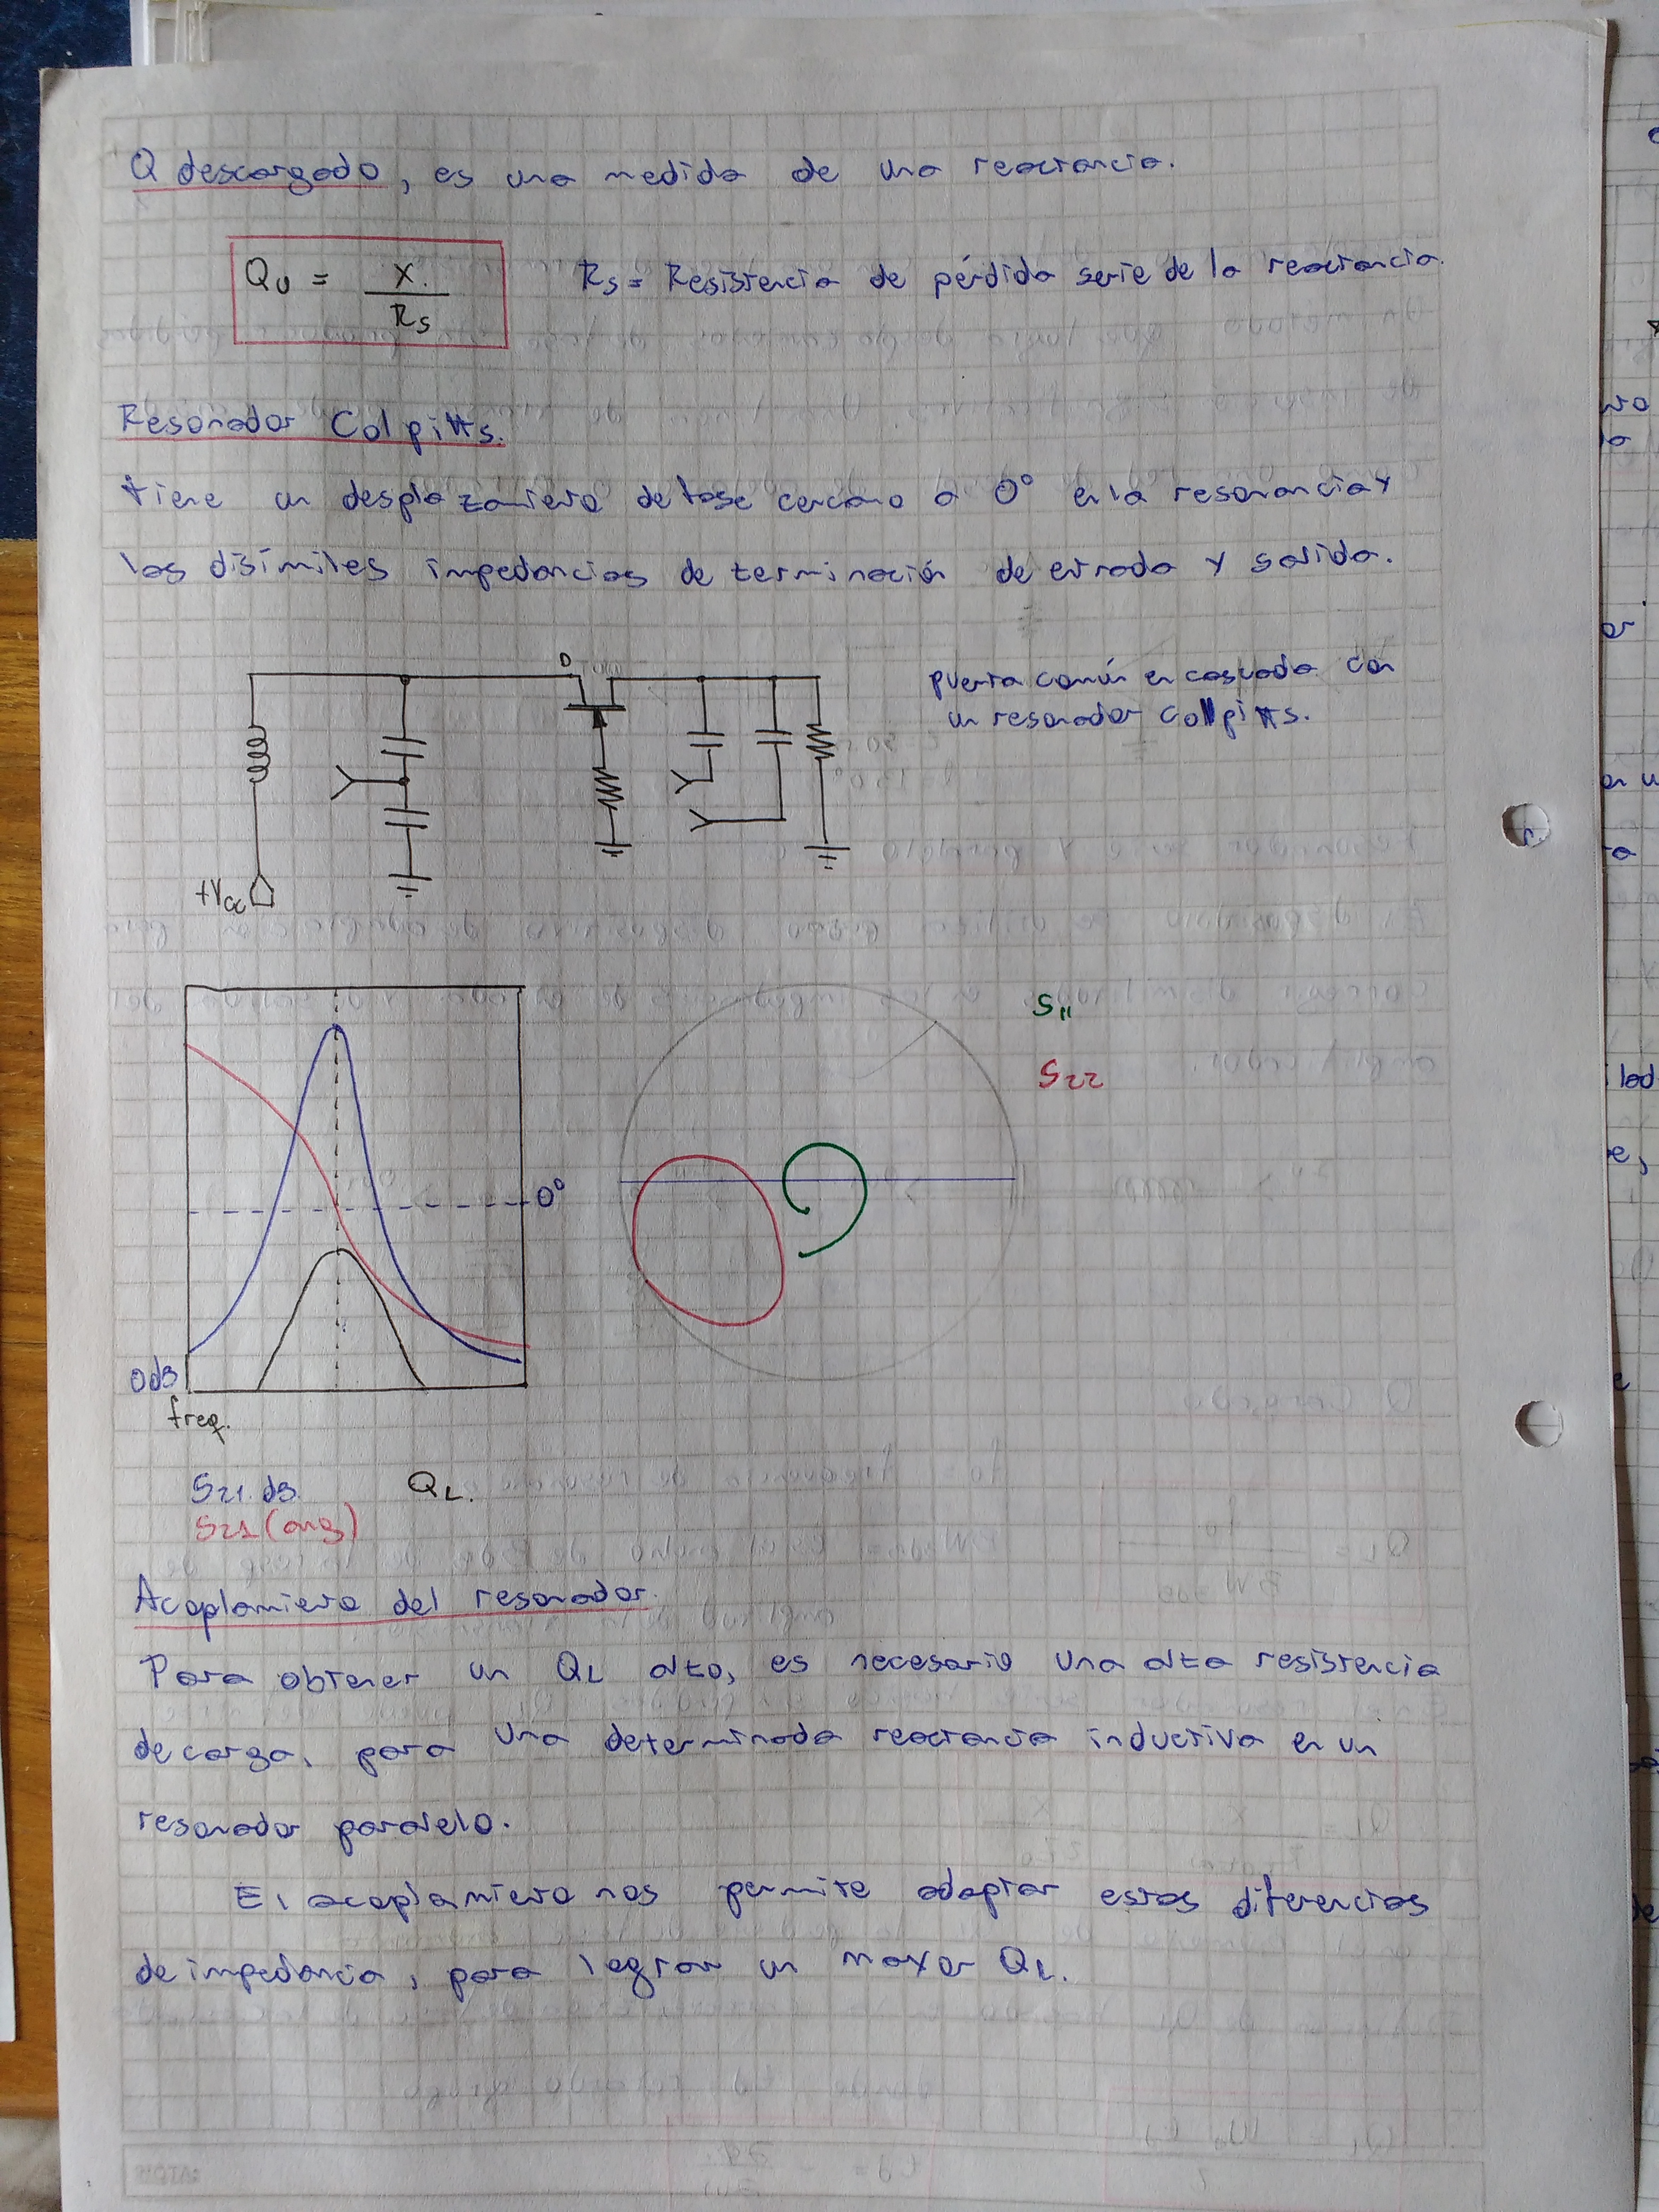 Q descargado, es una medida de una reactancia.
Qu = X / Rs
Rs = Resistencia de pérdida serie de la reactancia.
Resonador Colpitts.
tiene un desplazamiento de fase cercano a 0° en la resonancia y
las disímiles impedancias de terminación de entrada y salida.
D
puerta común en cascada con
un resonador Collpitts.
+Vcc
S11
S22
0°
0dB
freq.
S21.dB. QL.
S21(ang)
Acoplamiento del resonador.
Para obtener un QL alto, es necesario una alta resistencia
de carga, para una determinada reactancia inductiva en un
resonador paralelo.
El acoplamiento nos permite adaptar estas diferencias
de impedancia, para lograr un mayor QL.